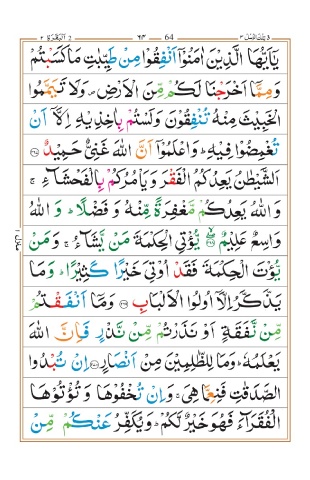 تِلْكَ الرُّسُلُ ٣ 64 ٦٤ اَلْبَقَرَة ٢
يٰۤاَيُّهَا الَّذِيْنَ اٰمَنُوْۤا اَنْفِقُوْا مِنْ طَيِّبٰتِ مَا كَسَبْتُمْ
وَمِمَّاۤ اَخْرَجْنَا لَكُمْ مِّنَ الْاَرْضِ ۪ وَلَا تَيَمَّمُوا
الْخَبِيْثَ مِنْهُ تُنْفِقُوْنَ وَلَسْتُمْ بِاٰخِذِيْهِ اِلَّاۤ اَنْ
تُغْمِضُوْا فِيْهِ ؕ وَاعْلَمُوْۤا اَنَّ اللّٰهَ غَنِيٌّ حَمِيْدٌ ۝۲۶۷
اَلشَّيْطٰنُ يَعِدُكُمُ الْفَقْرَ وَيَاْمُرُكُمْ بِالْفَحْشَآءِ ۚ
وَاللّٰهُ يَعِدُكُمْ مَّغْفِرَةً مِّنْهُ وَ فَضْلًا ؕ وَ اللّٰهُ
وَاسِعٌ عَلِيْمٌ ۝۲۶۸ يُّؤْتِي الْحِكْمَةَ مَنْ يَّشَآءُ ۚ وَمَنْ
يُّؤْتَ الْحِكْمَةَ فَقَدْ اُوْتِيَ خَيْرًا كَثِيْرًا ؕ وَمَا
يَذَّكَّرُ اِلَّاۤ اُولُوا الْاَلْبَابِ ۝۲۶۹ وَمَاۤ اَنْفَقْتُمْ
مِّنْ نَّفَقَةٍ اَوْ نَذَرْتُمْ مِّنْ نَّذْرٍ فَاِنَّ اللّٰهَ
يَعْلَمُهٗ ؕ وَمَا لِلظّٰلِمِيْنَ مِنْ اَنْصَارٍ ۝۲۷۰ اِنْ تُبْدُوا
الصَّدَقٰتِ فَنِعِمَّا هِيَ ۚ وَاِنْ تُخْفُوْهَا وَ تُؤْتُوْهَا
الْفُقَرَآءَ فَهُوَ خَيْرٌ لَّكُمْ ؕ وَيُكَفِّرُ عَنْكُمْ مِّنْ